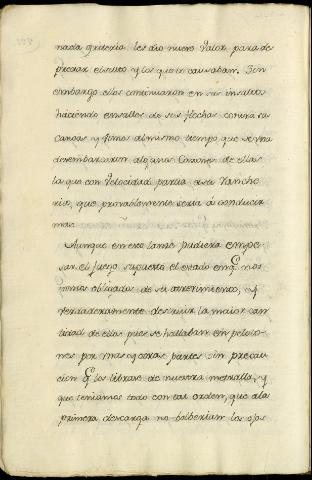 nada griteria les dio nuevo valor para des
preciar el susto q.e los que le causaban. Sin
embargo ellos continuaron en sus insultos
haciendo ensalles de sus flechas contra la
canoa y vimos al mismo tiempo, que se
desembarcaron algunas Canoas de ellas
la que con velocidad partia a su Ranche
ria, que probablemente seria á conducir
mas.
Aunque en este lance pudiera empe
sar el fuego supuesto el estado en q.e nos
vimos obligados de su atrevimiento, y
verdaderamente destruir la maior can
tidad de ellos pues se hallaban en peloto
nes por mas q.e otras partes sin precau
cion q.e los librase de nuestra metralla, y
que teniamos todo con tal orden, que a la
primera descarga no bolberian los ojos